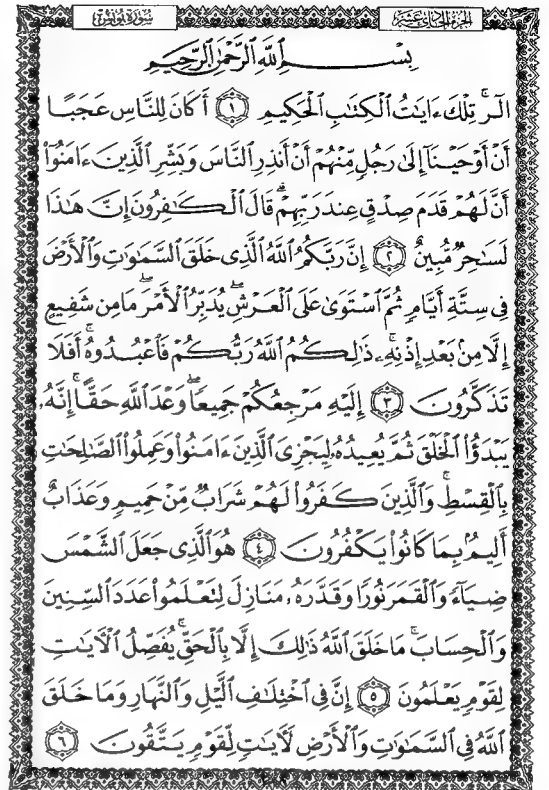 سُورَةُ يُونُسَ
الجزء الحادي عشر
بِسْمِ ٱللَّهِ ٱلرَّحْمَٰنِ ٱلرَّحِيمِ
الٓر ۚ تِلْكَ ءَايَٰتُ ٱلْكِتَٰبِ ٱلْحَكِيمِ ١ أَكَانَ لِلنَّاسِ عَجَبًا
أَنْ أَوْحَيْنَآ إِلَىٰ رَجُلٍ مِّنْهُمْ أَنْ أَنذِرِ ٱلنَّاسَ وَبَشِّرِ ٱلَّذِينَ ءَامَنُوٓا۟
أَنَّ لَهُمْ قَدَمَ صِدْقٍ عِندَ رَبِّهِمْ ۗ قَالَ ٱلْكَٰفِرُونَ إِنَّ هَٰذَا
لَسَٰحِرٌ مُّبِينٌ ٢ إِنَّ رَبَّكُمُ ٱللَّهُ ٱلَّذِى خَلَقَ ٱلسَّمَٰوَٰتِ وَٱلْأَرْضَ
فِى سِتَّةِ أَيَّامٍ ثُمَّ ٱسْتَوَىٰ عَلَى ٱلْعَرْشِ ۖ يُدَبِّرُ ٱلْأَمْرَ ۖ مَا مِن شَفِيعٍ
إِلَّا مِنۢ بَعْدِ إِذْنِهِۦ ۚ ذَٰلِكُمُ ٱللَّهُ رَبُّكُمْ فَٱعْبُدُوهُ ۚ أَفَلَا
تَذَكَّرُونَ ٣ إِلَيْهِ مَرْجِعُكُمْ جَمِيعًا ۖ وَعْدَ ٱللَّهِ حَقًّا ۚ إِنَّهُۥ
يَبْدَؤُا۟ ٱلْخَلْقَ ثُمَّ يُعِيدُهُۥ لِيَجْزِىَ ٱلَّذِينَ ءَامَنُوا۟ وَعَمِلُوا۟ ٱلصَّٰلِحَٰتِ
بِٱلْقِسْطِ ۚ وَٱلَّذِينَ كَفَرُوا۟ لَهُمْ شَرَابٌ مِّنْ حَمِيمٍ وَعَذَابٌ
أَلِيمٌۢ بِمَا كَانُوا۟ يَكْفُرُونَ ٤ هُوَ ٱلَّذِى جَعَلَ ٱلشَّمْسَ
ضِيَآءً وَٱلْقَمَرَ نُورًا وَقَدَّرَهُۥ مَنَازِلَ لِتَعْلَمُوا۟ عَدَدَ ٱلسِّنِينَ
وَٱلْحِسَابَ ۚ مَا خَلَقَ ٱللَّهُ ذَٰلِكَ إِلَّا بِٱلْحَقِّ ۚ يُفَصِّلُ ٱلْءَايَٰتِ
لِقَوْمٍ يَعْلَمُونَ ٥ إِنَّ فِى ٱخْتِلَٰفِ ٱلَّيْلِ وَٱلنَّهَارِ وَمَا خَلَقَ
ٱللَّهُ فِى ٱلسَّمَٰوَٰتِ وَٱلْأَرْضِ لَءَايَٰتٍ لِّقَوْمٍ يَتَّقُونَ ٦